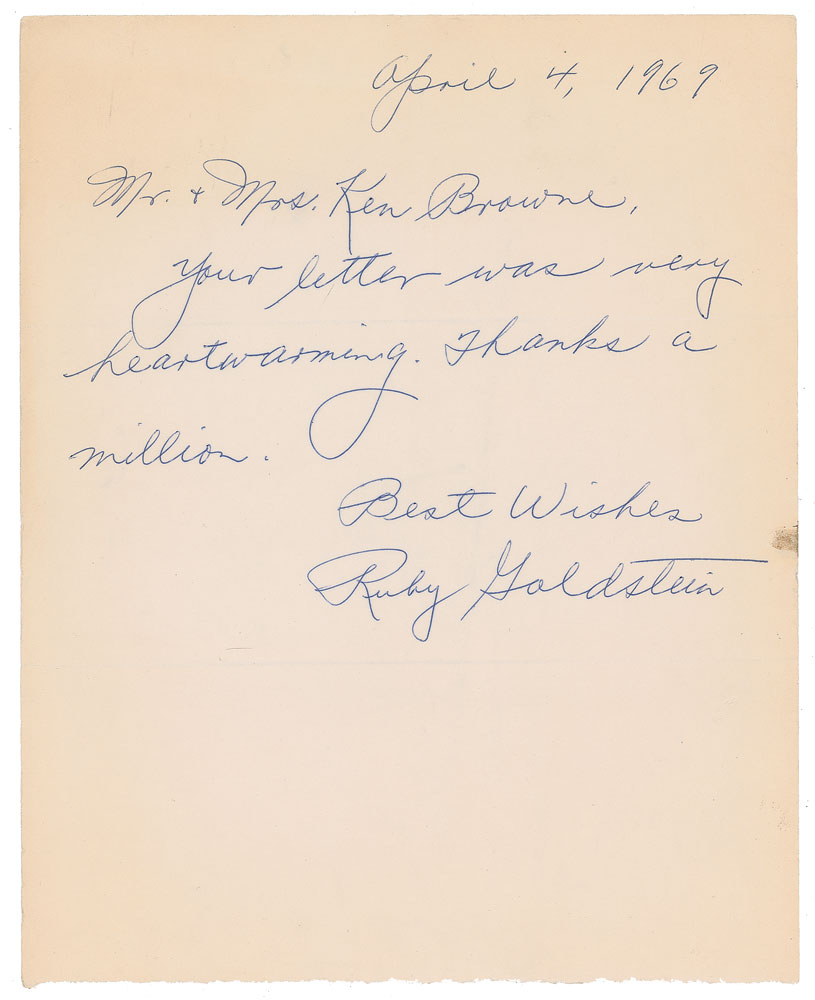 April 4, 1969
Mr. + Mrs. Ken Browne,
Your letter was very
heartwarming. Thanks a
million.
Best Wishes
Ruby Goldstein